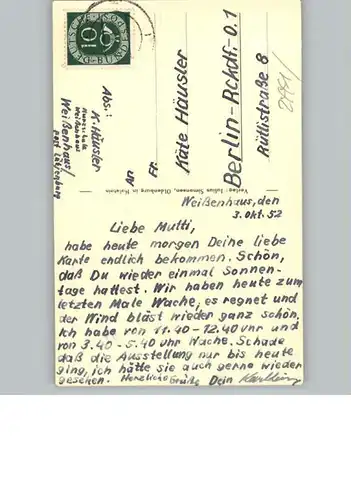 DEUTSCHE BUNDESPOST
10
Abs.:
K. Häusler
Weißenhaus
Weißenhaus/
post Lütjenburg
An
Fr.
Käte Häusler
Berlin-Rchdf.-O.1
Rütlistraße 8
Verlag: Julius Simonsen, Oldenburg in Holstein
Weißenhaus, den
3. Okt. 52
Liebe Mutti,
habe heute morgen Deine liebe
Karte endlich bekommen. Schön,
daß Du wieder einmal Sonnen-
tage hattest. Wir haben heute zum
letzten Male Wache, es regnet und
der Wind bläst wieder ganz schön.
Ich habe von 11.40-12.40 uhr und
von 3.40-5.40 uhr Wache. Schade
daß die Ausstellung nur bis heute
ging, ich hätte sie auch gerne wieder
gesehen. Herzliche Grüße Dein